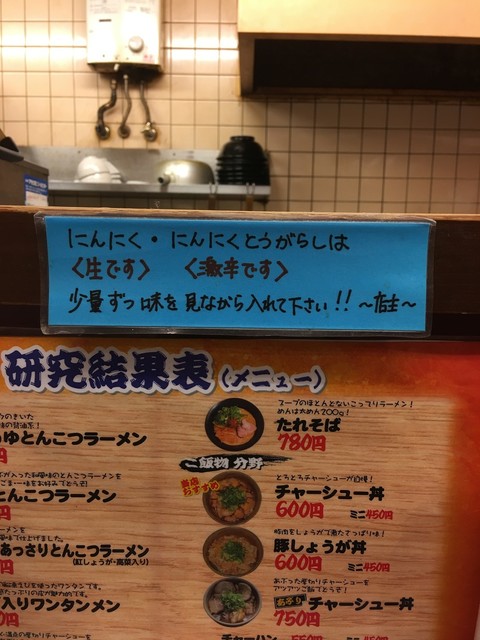 にんにく・にんにくとうがらしは
〈生です〉 〈激辛です〉
少量ずつ味を見ながら入れて下さい!! 〜店主〜
研究結果表(メニュー)
ゆとんこつラーメン
とんこつラーメン
あっさりとんこつラーメン
(紅しょうが・高菜入り)
入りワンタンメン
スープのほとんどないこってりラーメン!
めんは太めん200g!
たれそば
780円
ご飯物 分野
当店おすすめ
とろとろチャーシューが自慢!
チャーシュー丼
600円 ミニ450円
豚肉をしょうがで煮たさっぱり味!
豚しょうが丼
600円 ミニ450円
あぶった厚切りチャーシューを
アツアツご飯でどうぞ!
チャーシュー丼
750円
チャーハン 550円